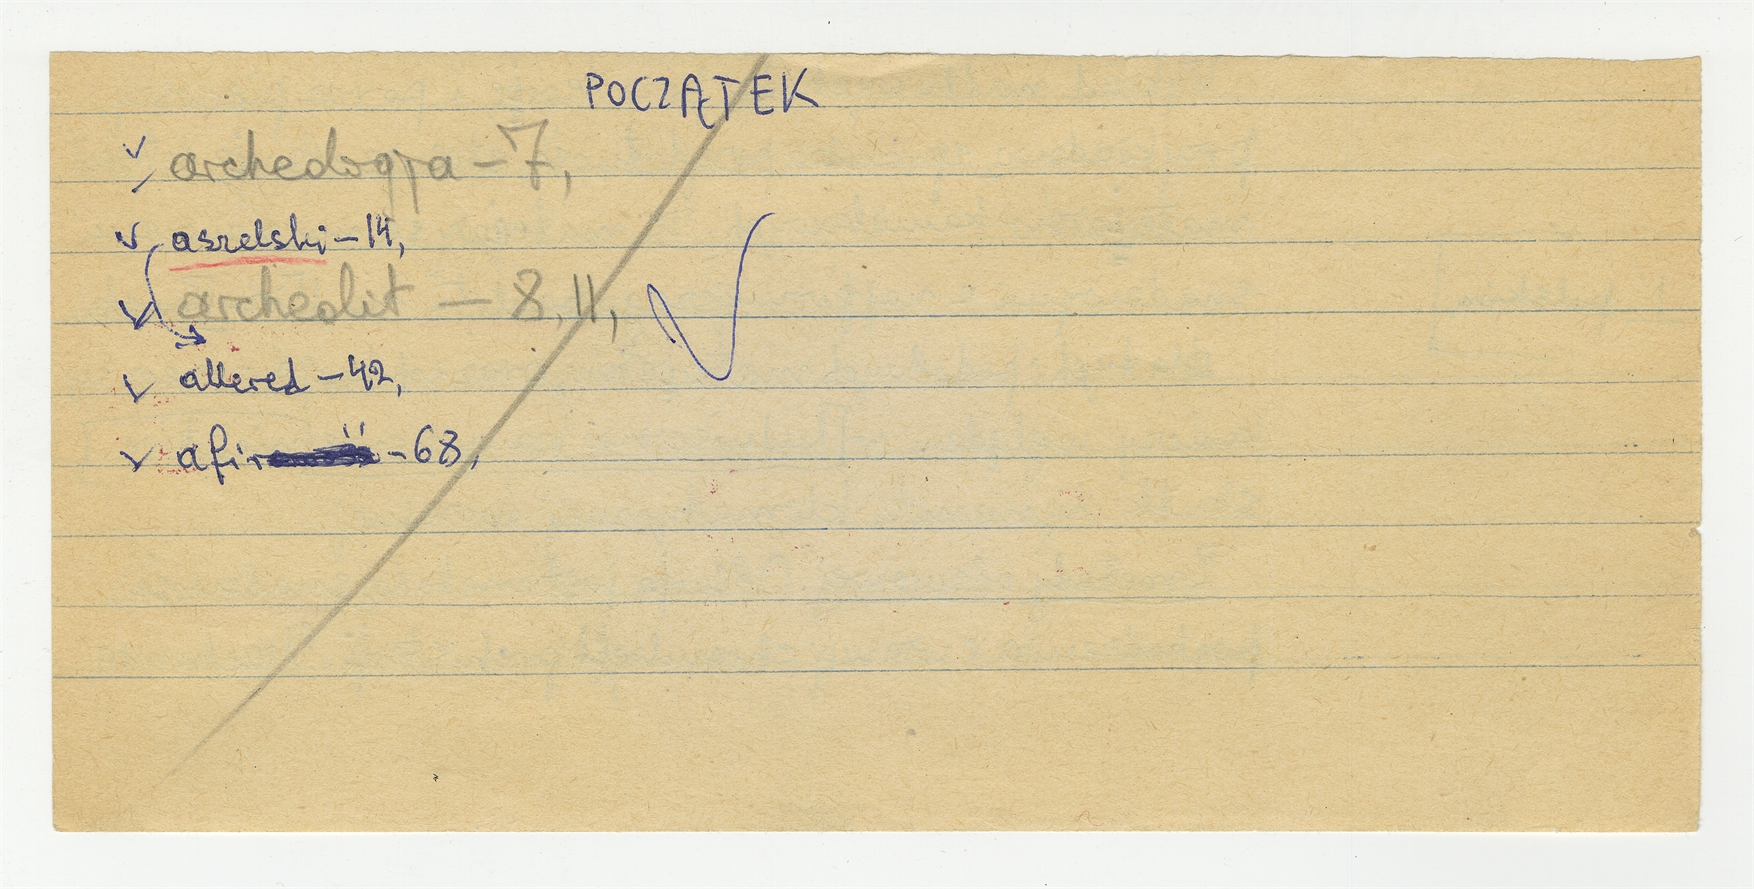 POCZĄTEK
archeologja – 7,
aszelski – 14,
archeolit – 8, 11,
allered – 42,
afir – 68,